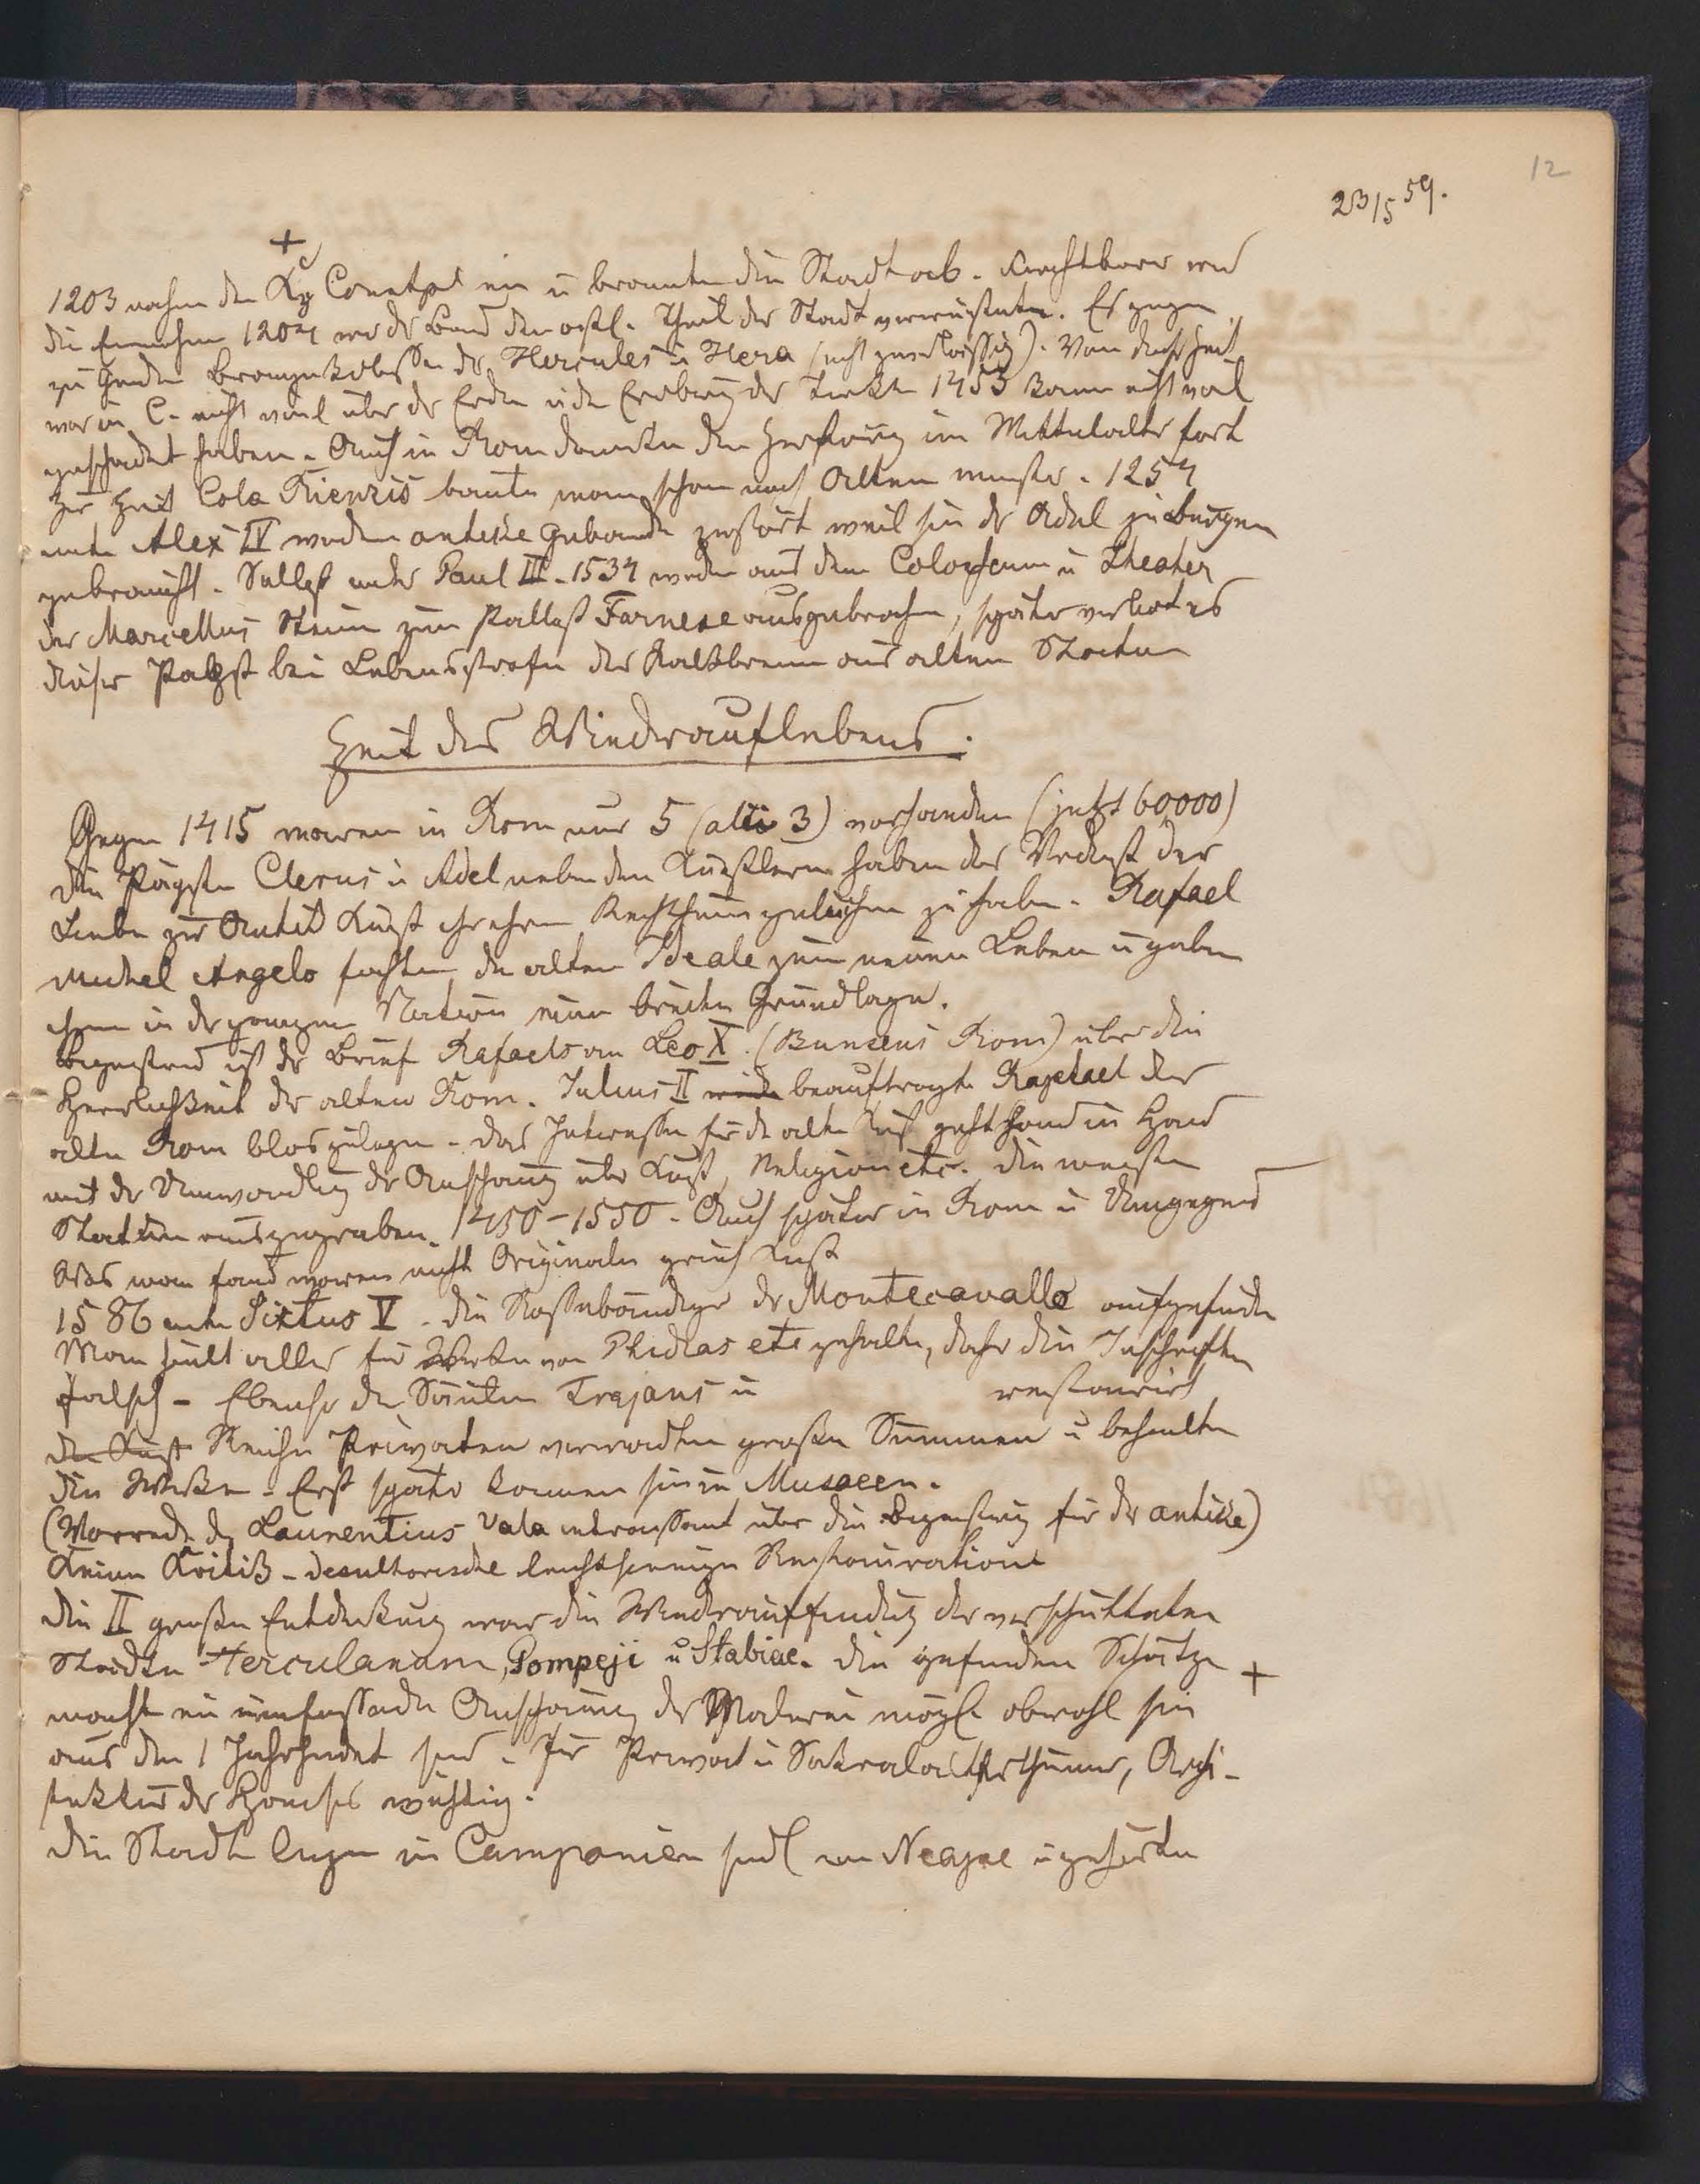 12
23/5 59.
+
1203 nahm der Kzg Constpel ein u brannte die Stadt ab. Furchtbarer war
die Einnahme 1204 wo der Brand den oestl. Theil der Stadt verwüstete. Es gingen
zu Grunde Bronzekolosse des Hercules u Hera (nicht zuverlässig). Von dieser Zeit
war in C. nicht viel über der Erden u die Eroberung der Türken 1453 kann nicht viel
geschadet haben. Auch in Rom dauerte die Zerstörung im Mittelalter fort
Zur Zeit Cola Rienzis baute man schon nach Altem muster. 1254
unter Alex IV wurden antike Gebäude zerstört weil sie der Adel zu Burgen
gebraucht. Selbst unter Paul III. 1534 wurden aus dem Colosseum u Theater
des Marcellus Steine zum Pallast Farnese ausgebrochen, später verbot es
dieser Pabst bei Lebensstrafe das Kalkbrennen aus alten Statuen
Zeit des Wiederauflebens.
Gegen 1415 waren in Rom nur 5 (alii 3) vorhanden (jetzt 60000)
die Päpste Clerus u Adel neben den Künstlern haben das Verdienst der
Liebe zur Antik Kunst ihren Reichthum geliehen zu haben. Rafael
Michel Angelo fachten die alten Ideale zum neuen Leben u gaben
ihnen in der ganzen Nation eine breite Grundlage.
Begeisternd ist der Brief Rafaels an Leo X. (Bunsens Rom) über die
Herrlichkeit des alten Rom. Julius II beauftragte Raphael das
alte Rom bloszulegen. das Interesse für die alte Kunst geht Hand in Hand
mit der Umwandlung der Anschauung über Kunst, Religion etc. die meisten
Statuen ausgegraben. 1450-1550. Auch später in Rom u Umgegend
Was man fand waren nicht Originale griech Kunst
1586 unter Sixtus V. die Rossebändiger des Montecavallo aufgefunden
Man hielt alles für Werke von Phidias etc gehalten, daher die Inschriften
falsch - Ebenso die Säulen Trajans u restaurirt
die Kunst Reiche Privaten verwandten große Summen u behielten
die Werke. Erst später kamen sie in Musaeen.
(Vorrede des Laurentius Vala interessant über die Begeisterung für die antike)
Keine Kritik - desultorische leichtsinnige Restauration
die II große Entdeckung war die Wiederauffindung der verschütteten
Städte Herculanum, Pompeji u Stabiae. die gefunden Schätze +
macht eine umfassende Anschauung der Malerei mögl. obwohl sie
aus dem 1 Jahrhundert sind. Für Privat u Sakralalterthümer, Archi-
tektur des Hauses wichtig.
die Städte liegen in Campanien südl von Neapel u gehörten